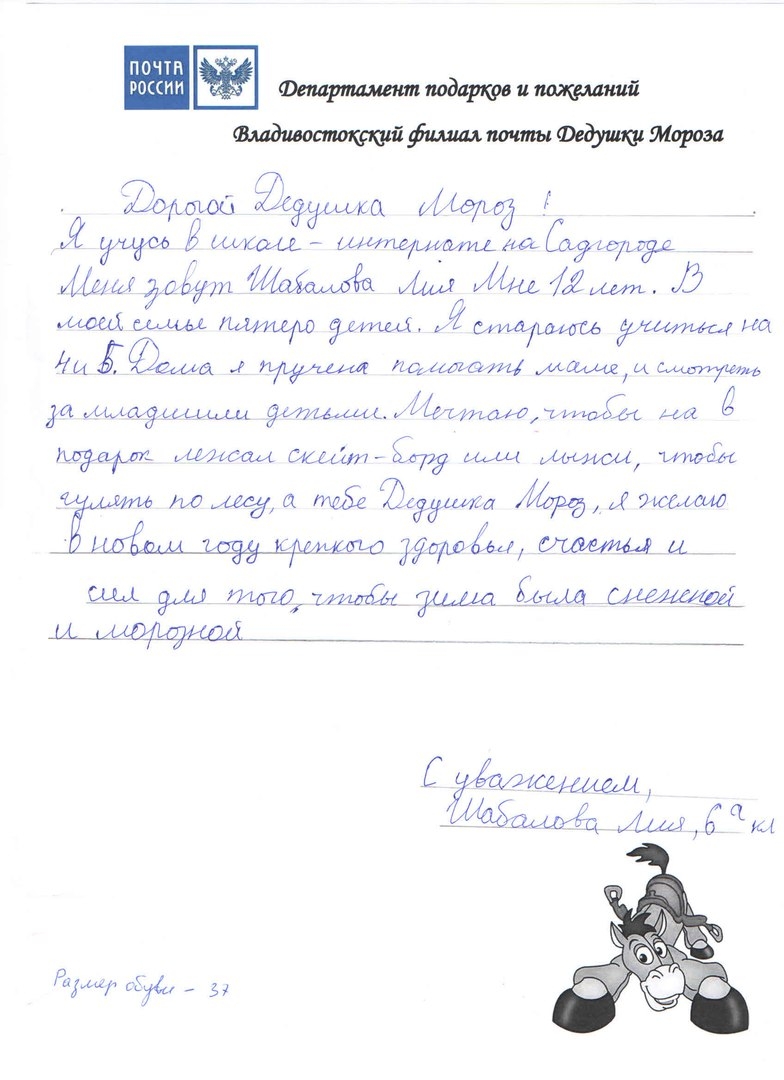 ПОЧТА
РОССИИ
Департамент подарков и пожеланий
Владивостокский филиал почты Дедушки Мороза
Дорогой Дедушка Мороз!
Я учусь в школе-интернате на Садгороде
Меня зовут Шабалова Лия Мне 12 лет. В
моей семье пятеро детей. Я стараюсь учиться на
4 и 5. Дома я пручена помогать маме, и смотреть
за младшими детьми. Мечтаю, чтобы на в
подарок лежал скейт-борд или лыжи, чтобы
гулять по лесу, а тебе Дедушка Мороз, я желаю
в новом году крепкого здоровья, счастья и
сил для того, чтобы зима была снежной
и морозной
С уважением,
Шабалова Лия, 6 а кл
Размер обуви - 37